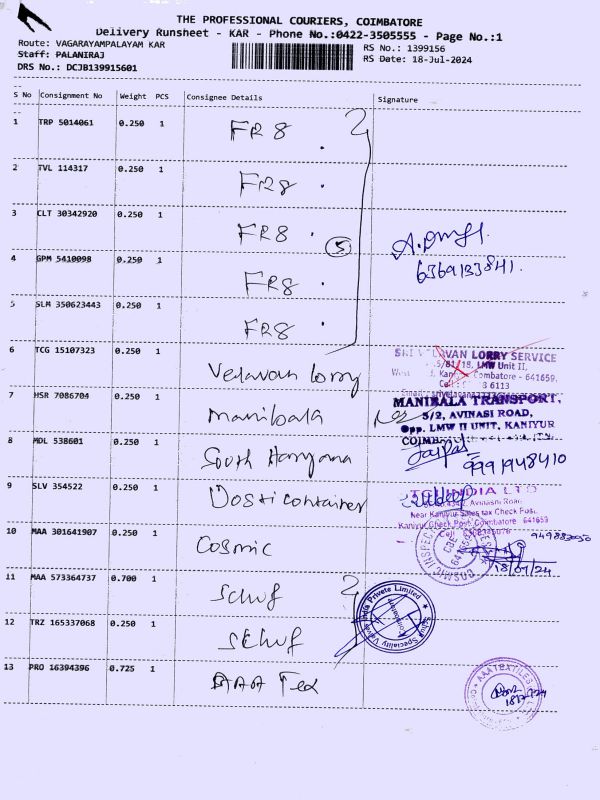 THE PROFESSIONAL COURIERS, COIMBATORE
Delivery Runsheet - KAR - Phone No.:0422-3505555 - Page No.:1
Route: VAGARAYAMPALAYAM KAR
RS No.: 1399156
Staff: PALANIRAJ
RS Date: 18-Jul-2024
DRS No.: DCJB139915601
S No Consignment No Weight PCS Consignee Details Signature
1 TRP 5014061 0.250 1 FR8
2 TVL 114317 0.250 1 FR8
3 CLT 30342920 0.250 1 FR8
5
6369133841.
4 GPM 5410098 0.250 1 FR8
5 SLM 350623443 0.250 1 FR8
6 TCG 15107323 0.250 1 Velavan lorry
LORRY SERVICE
5/81/18, LMW Unit II,
Coimbatore - 641659.
6113
7 HSR 7086704 0.250 1 Manibala
MANIBALA TRANSPORT,
5/2, AVINASI ROAD,
Opp. LMW II UNIT, KANIYUR
8 MDL 538601 0.250 1 South Haryana
9991948410
9 SLV 354522 0.250 1 Dosti container
INDIA LTD
Avinasi Road
Near Kaniyur Sales tax Check Post,
Kaniyur Check Post, Coimbatore 641659
10 MAA 301641907 0.250 1 Cosmic
COSMIC INSPEC
18/07/24
11 MAA 573364737 0.700 1 Schuf
Schuf Speciality Valves India Private Limited
12 TRZ 165337068 0.250 1 Schuf
13 PRO 16394396 0.725 1 AAA Tex
AAA TEXTILES